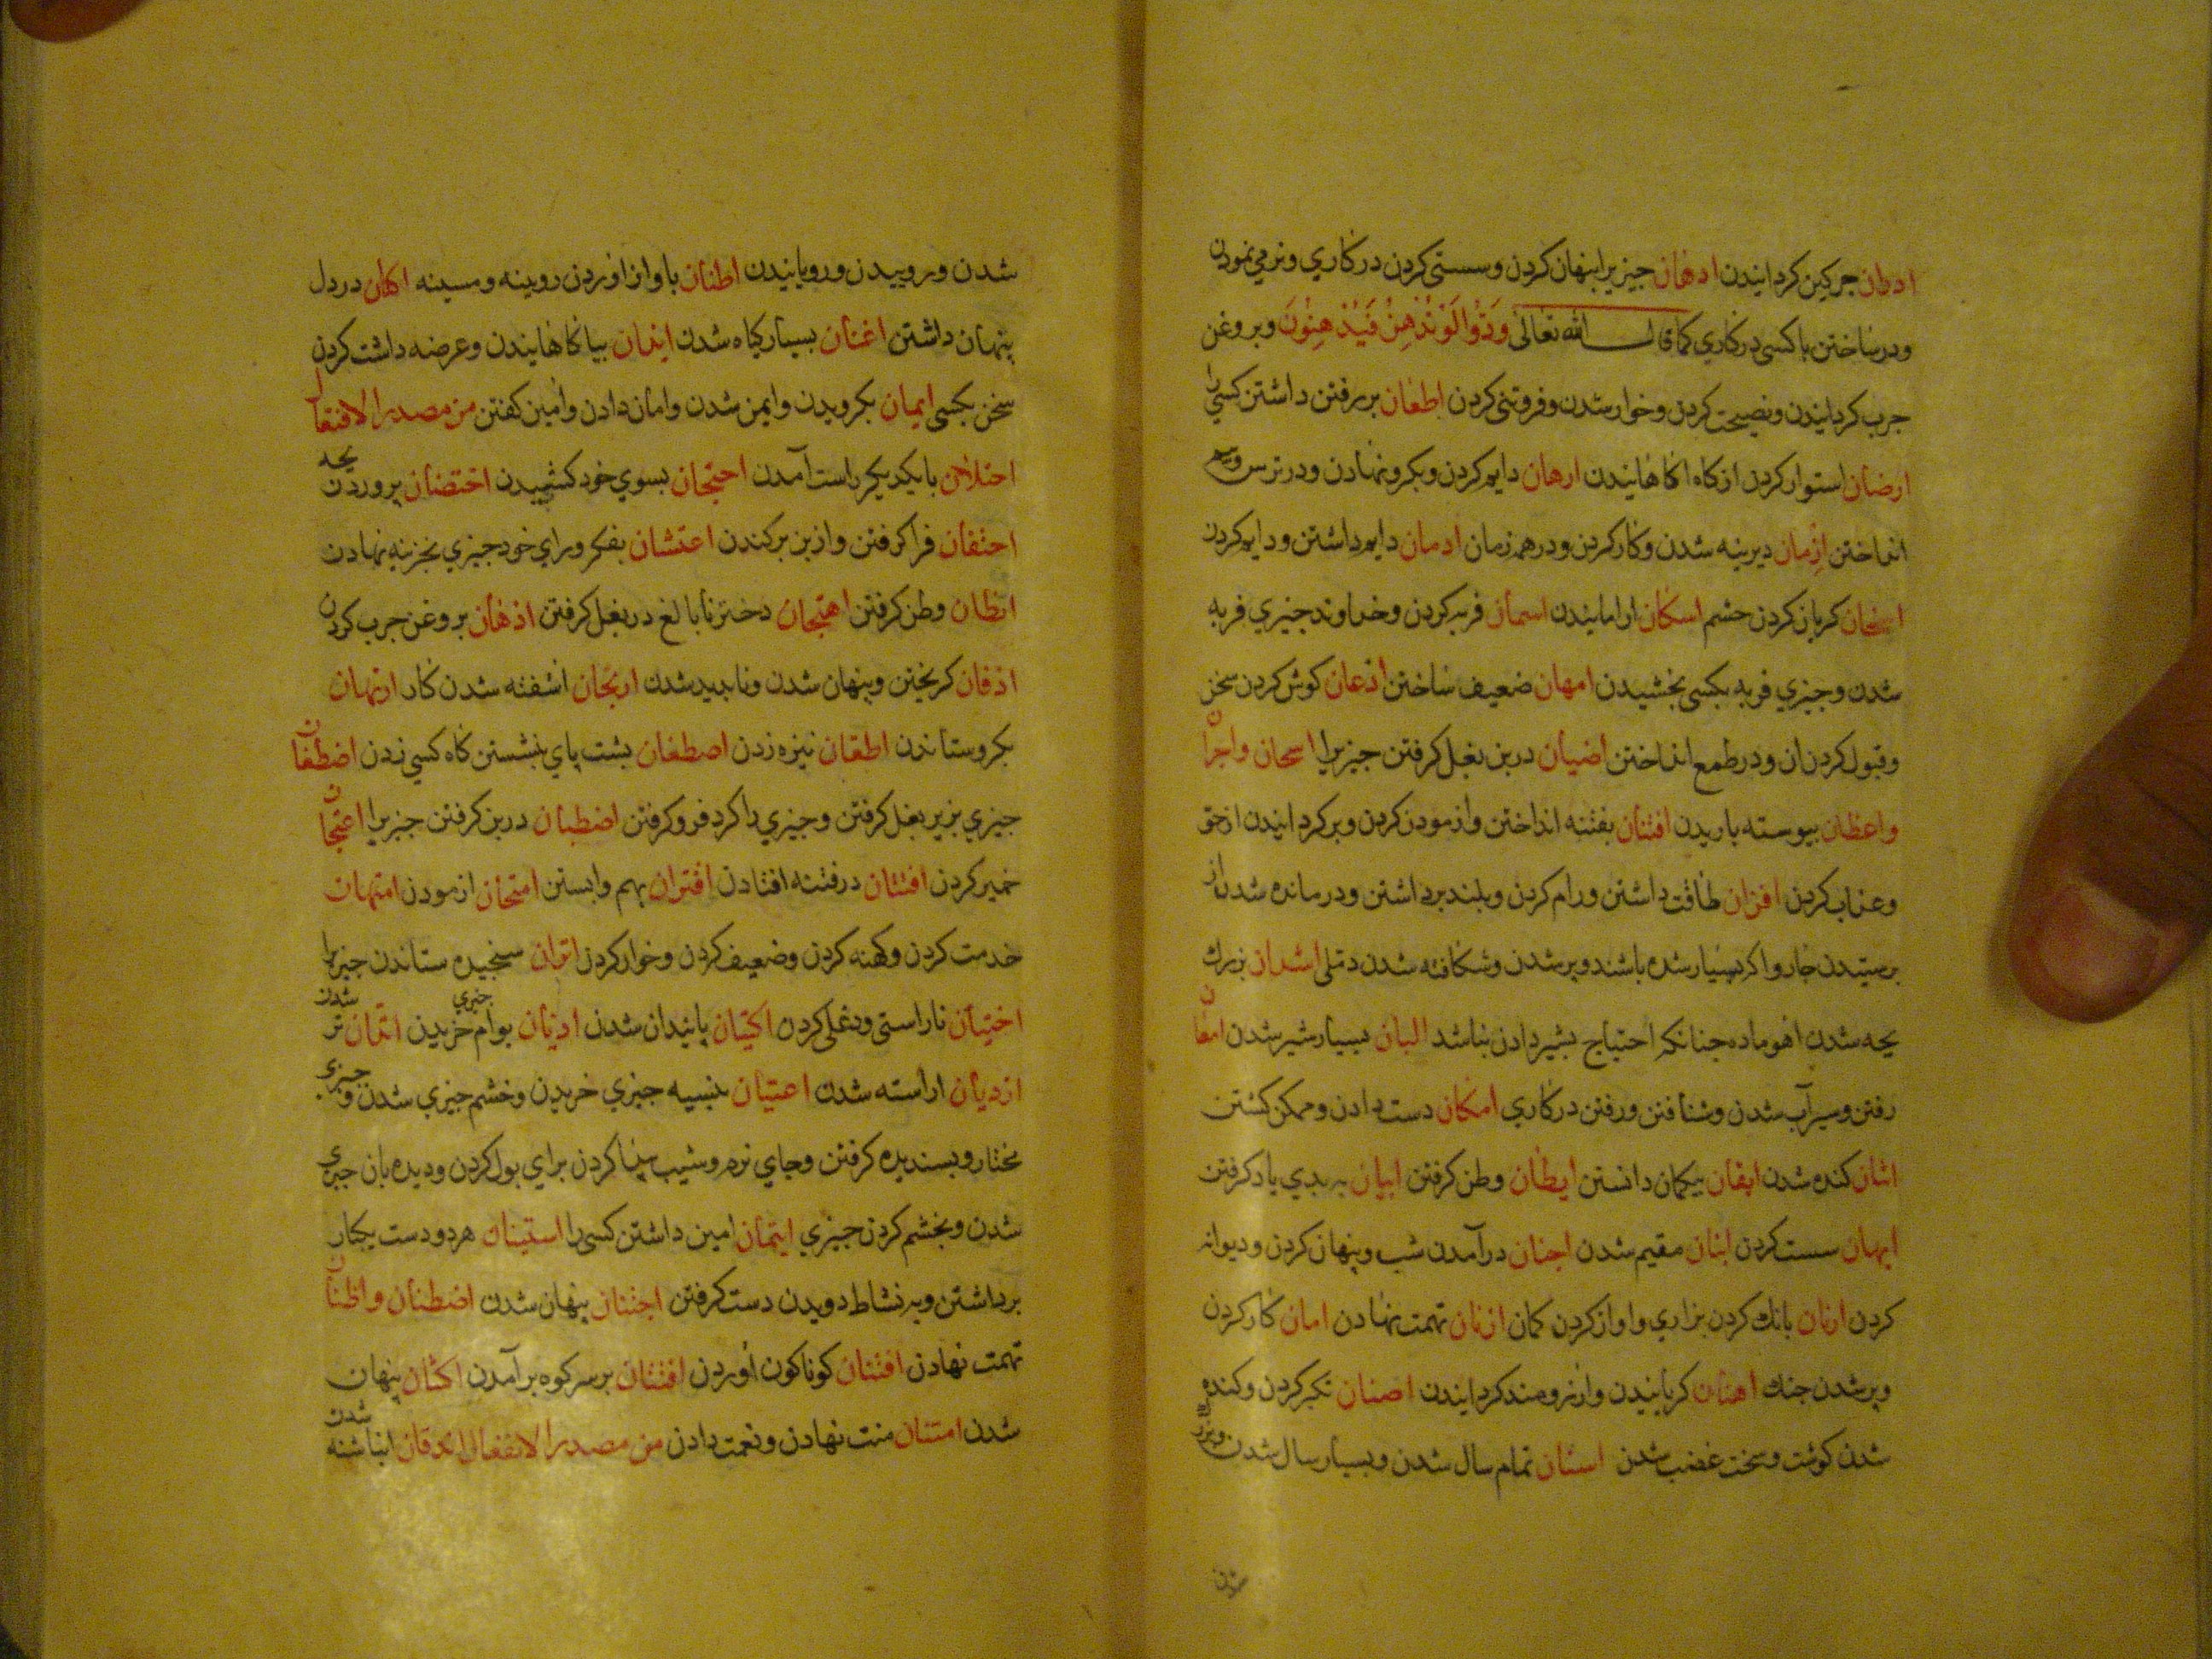 ادران جركين كردانيدن ادهان جيزيرا پنهان كردن وسستى كردن در كاري ونرمي نمودن
ودرساختن با كسى در كاري كما قال الله تعالى وَدُّوا لَوْ تُدْهِنُ فَيُدْهِنُونَ وبروغن
جرب كردانيدن ونصيحت كردن وخوار شدن وفروتنى كردن اطغان بررفتن داشتن كسي را
ارضان استوار كردن از كاه اكاهانيدن ارهان دايم كردن وبكرو نهادن ودر ترس وبيم
انداختن ازمان ديرينه شدن وكار كردن ودر همه زمان ادمان دايم داشتن ودايم كردن
اسخان كريان كردن جشم اسكان ارامانيدن اسمان فربه كردن وخداوند جيزي فربه
شدن وجيزي فربه بكسى بخشيدن امهان ضعيف ساختن اذعان كوش كردن سخن
وقبول كردن ان ودر طمع انداختن اضبان در بن بغل كرفتن جيزيرا اسحان واجران
واعظان بيوسته باريدن افتان بفتنه انداختن وازمودن كردن وبركردانيدن از حق
وعذاب كردن اقران طاقت داشتن ورام كردن وبلند برداشتن ودرمانده شدن از
برستيدن جاروا كه بسيار شده باشند وپر شدن وشكافته شدن دملى اشدان بزرك
بجه شدن اهو ماده جنانكه احتياج بشير دادن نباشد البان بسيار شير شدن امعان
رفتن وسيرآب شدن وشتافتن ورفتن در كاري امكان دست دادن وممكن كشتن
انتان كنده شدن ايقان بيكمان دانستن ايطان وطن كرفتن ابيان به بدي ياد كرفتن
ايهان سست كردن ابنان مقيم شدن اجنان درآمدن شب وپنهان كردن وديوانه
كردن ارنان بانك كردن بزاري واواز كردن كمان ازنان تهمت نهادن امان كار كردن
وپر شدن جنك اهنان كريانيدن وارزومند كردانيدن اصنان تكبر كردن وكنده
شدن كوشت وسخت غضب شدن اسنان تمام سال شدن وبسيار سال شدن وبزرك
شدن
شدن وروييدن ورويانيدن اطنان باواز اوردن رويينه ومسينه اكنان در دل
پنهان داشتن اغنان بسيار كياه شدن ايذان بيا كاهانيدن وعرضه داشت كردن
سخن بكسى ايمان بكرويدن وايمن شدن وامان دادن وامين كفتن من مصدر الافتعال
احتلان با يكديكر راست آمدن احتجان بسوي خود كشيدن احتضان پروردن بجه
احتفان فرا كرفتن واز بن بركندن اعتشان بفكر وراي خود جيزي بخزينه نهادن
اتطان وطن كرفتن اهتجان دختر نابالغ در بغل كرفتن ادهان بروغن جرب كردن
ادفان كريختن وپنهان شدن وناپديد شدن ارتجان اشفته شدن كار ارتهان
بكرو ستاندن اطعان نيزه زدن اصطغان بشت پاي بنشستن كاه كسي زدن اضطغان
جيزي بزير بغل كرفتن وجيزي را كرد فرو كرفتن اضطبان در بن كرفتن جيزيرا اعتجان
خمير كردن افتتان در فتنه افتادن اقتران بهم وابستن امتحان ازمودن امتهان
خدمت كردن وكهنه كردن وضعيف كردن وخوار كردن اتزان سنجيده ستاندن جيزيرا
اختيان ناراستى ودغلى كردن اكتيان پايندان شدن اديان بوام خريدن جيزي اثمان تر شدن
ازديان اراسته شدن اعتيان بنسيه جيزي خريدن وخشم جيزي شدن وجيزي
مختار وپسنديده كرفتن وجاي نرم وشيب پيدا كردن براي بول كردن وديده بان جيزي
شدن وبخشم كردن جيزي ايتمان امين داشتن كسى را استينان هر دو دست بيكبار
برداشتن وبه نشاط دويدن دست كرفتن اجتنان پنهان شدن اضطنان واظنان
تهمت نهادن افتنان كوناكون اوردن اقتنان بر سر كوه برآمدن اكتنان پنهان
شدن امتنان منت نهادن ونعمت دادن من مصدر الانفعال اندفان انباشته شدن